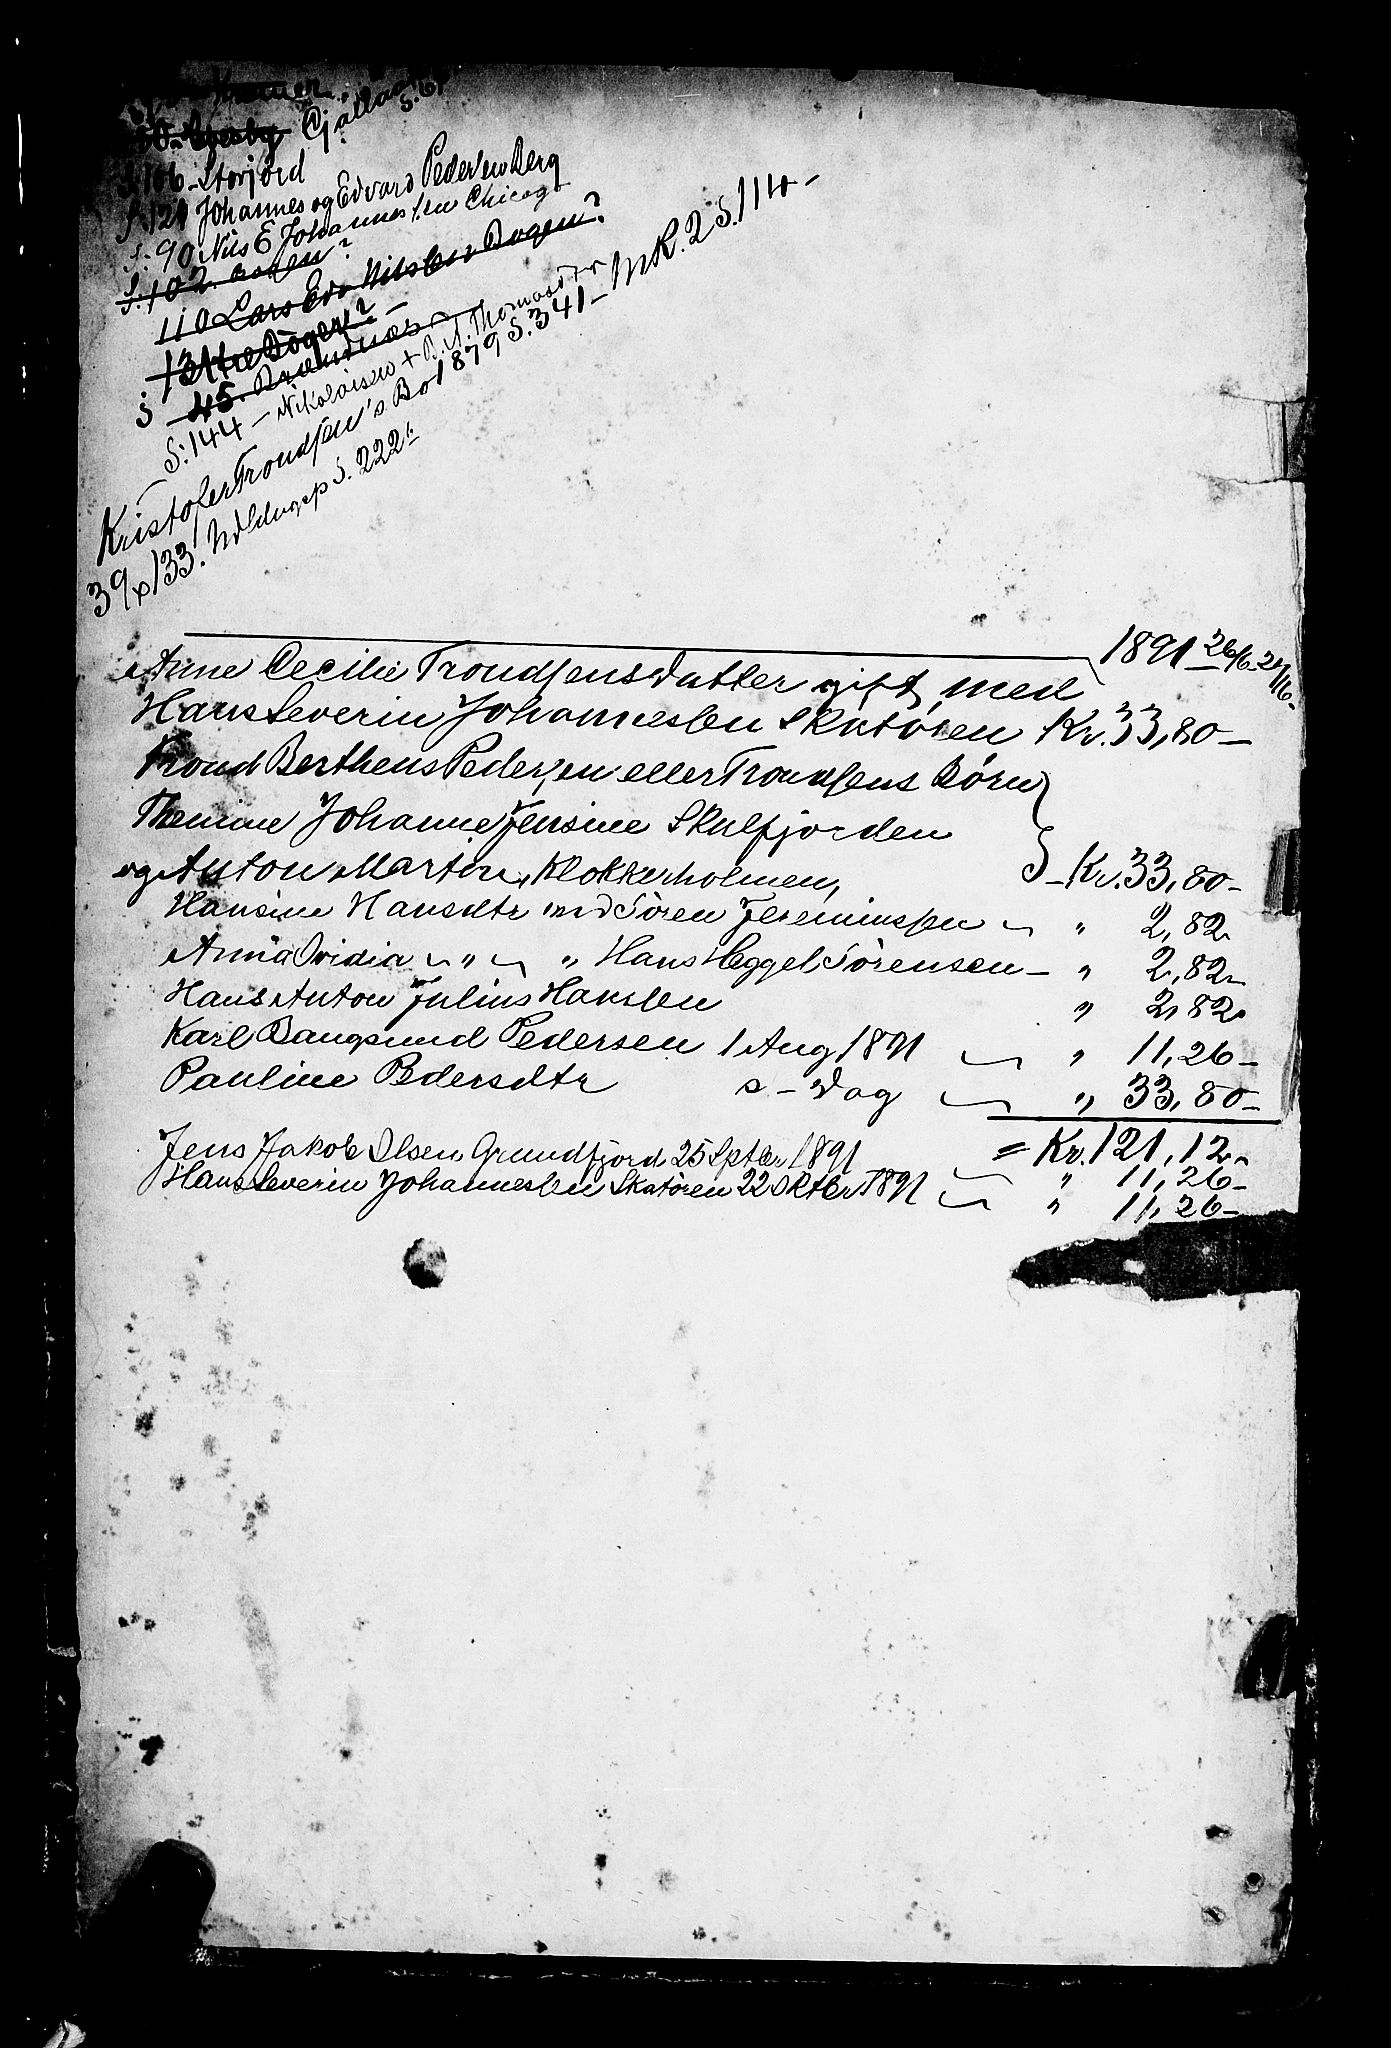 S. 106 - Storjord
S. 121 Johannes og Edvard Pedersen Berg
S: 90 Nils E Johannessen Chicago
S: 102. Bogen?
110 Lars Edv Nilsen Bogen?
Bogen? -
S - 45.
S: 144 - Nikolaisen + B. A. Thomasdtr
Kristofer Trondsen's Bo 1879 S. 341 - MR. 2 S. 114 -
39 x 133. S. 222
1891 26/6
Anne Cecilie Trondsensdatter gift med
Hans Severin Johannessen Skatören Kr. 33,80 -
Trond Berthens Pedersen eller Trondsens Börn
Johanne Jensine Skulfjorden
og Anton Martin, Klokkerholmen, Kr. 33,80 -
Hansine Hansdtr md Sören Jereminssen " 2,82
Anna Ovidia " " Hans Heggel Sörensen - " 2,82
Hans Anton Julius Hansen " 2,82
Karl Bangsund Pedersen 1 Aug 1891 " 11,26 -
Pauline Pedersdtr s - Dag " 33,80 -
= Kr. 121,12
Jens Jakob Olsen Grundfjord 25 Septbr 1891 " 11,26 -
Hans Severin Johannessen Skatören 22 Oktbr 1891 " 11,26 -